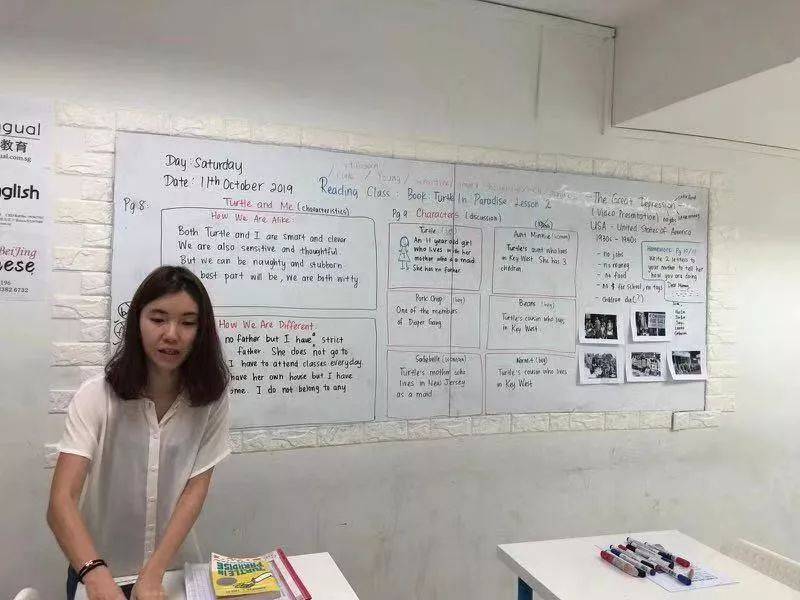 gual
教育
al.com.sg
nglish
BeiJing
nese
196
8382 6732
Day: Saturday
Date: 11th October 2019
Reading Class: Book: Turtle In Paradise Lesson 2
Pg 8:
Turtle and Me (characteristics)
How We Are Alike:
Both Turtle and I are smart and clever
We are also sensitive and thoughtful.
But we can be naughty and stubborn
best part will be, we are both witty
How We Are Different:
no father but I have strict
father. She does not go to
I have to attend classes everyday.
have her own house but I have
ome. I do not belong to any
Pg 8 Characters (discussion)
Turtle
An 11 year old girl
who lives with her
mother who is a maid
She has no father.
Aunt Minnie (woman)
Turtle's aunt who lives
in Key West. She has 3
children
Pork Chop (boy)
One of the members
of Diaper Gang
Beans (boy)
Turtle's cousin who lives
in Key West
Sadiebelle (woman)
Turtle's mother who
lives in New Jersey
as a maid
Kermit (boy)
Turtle's cousin who lives
in Key West
The Great Depression
(Video Presentation)
USA - United States of America
1930s - 1940s
- no jobs
- no money
- no food
- no $ for school, no toys
- children die(?)
Homework: Pg 10/11
Write 2 letters to
your mother to tell her
how you are doing
Dear Mommy,
TURTLE IN
PARADISE